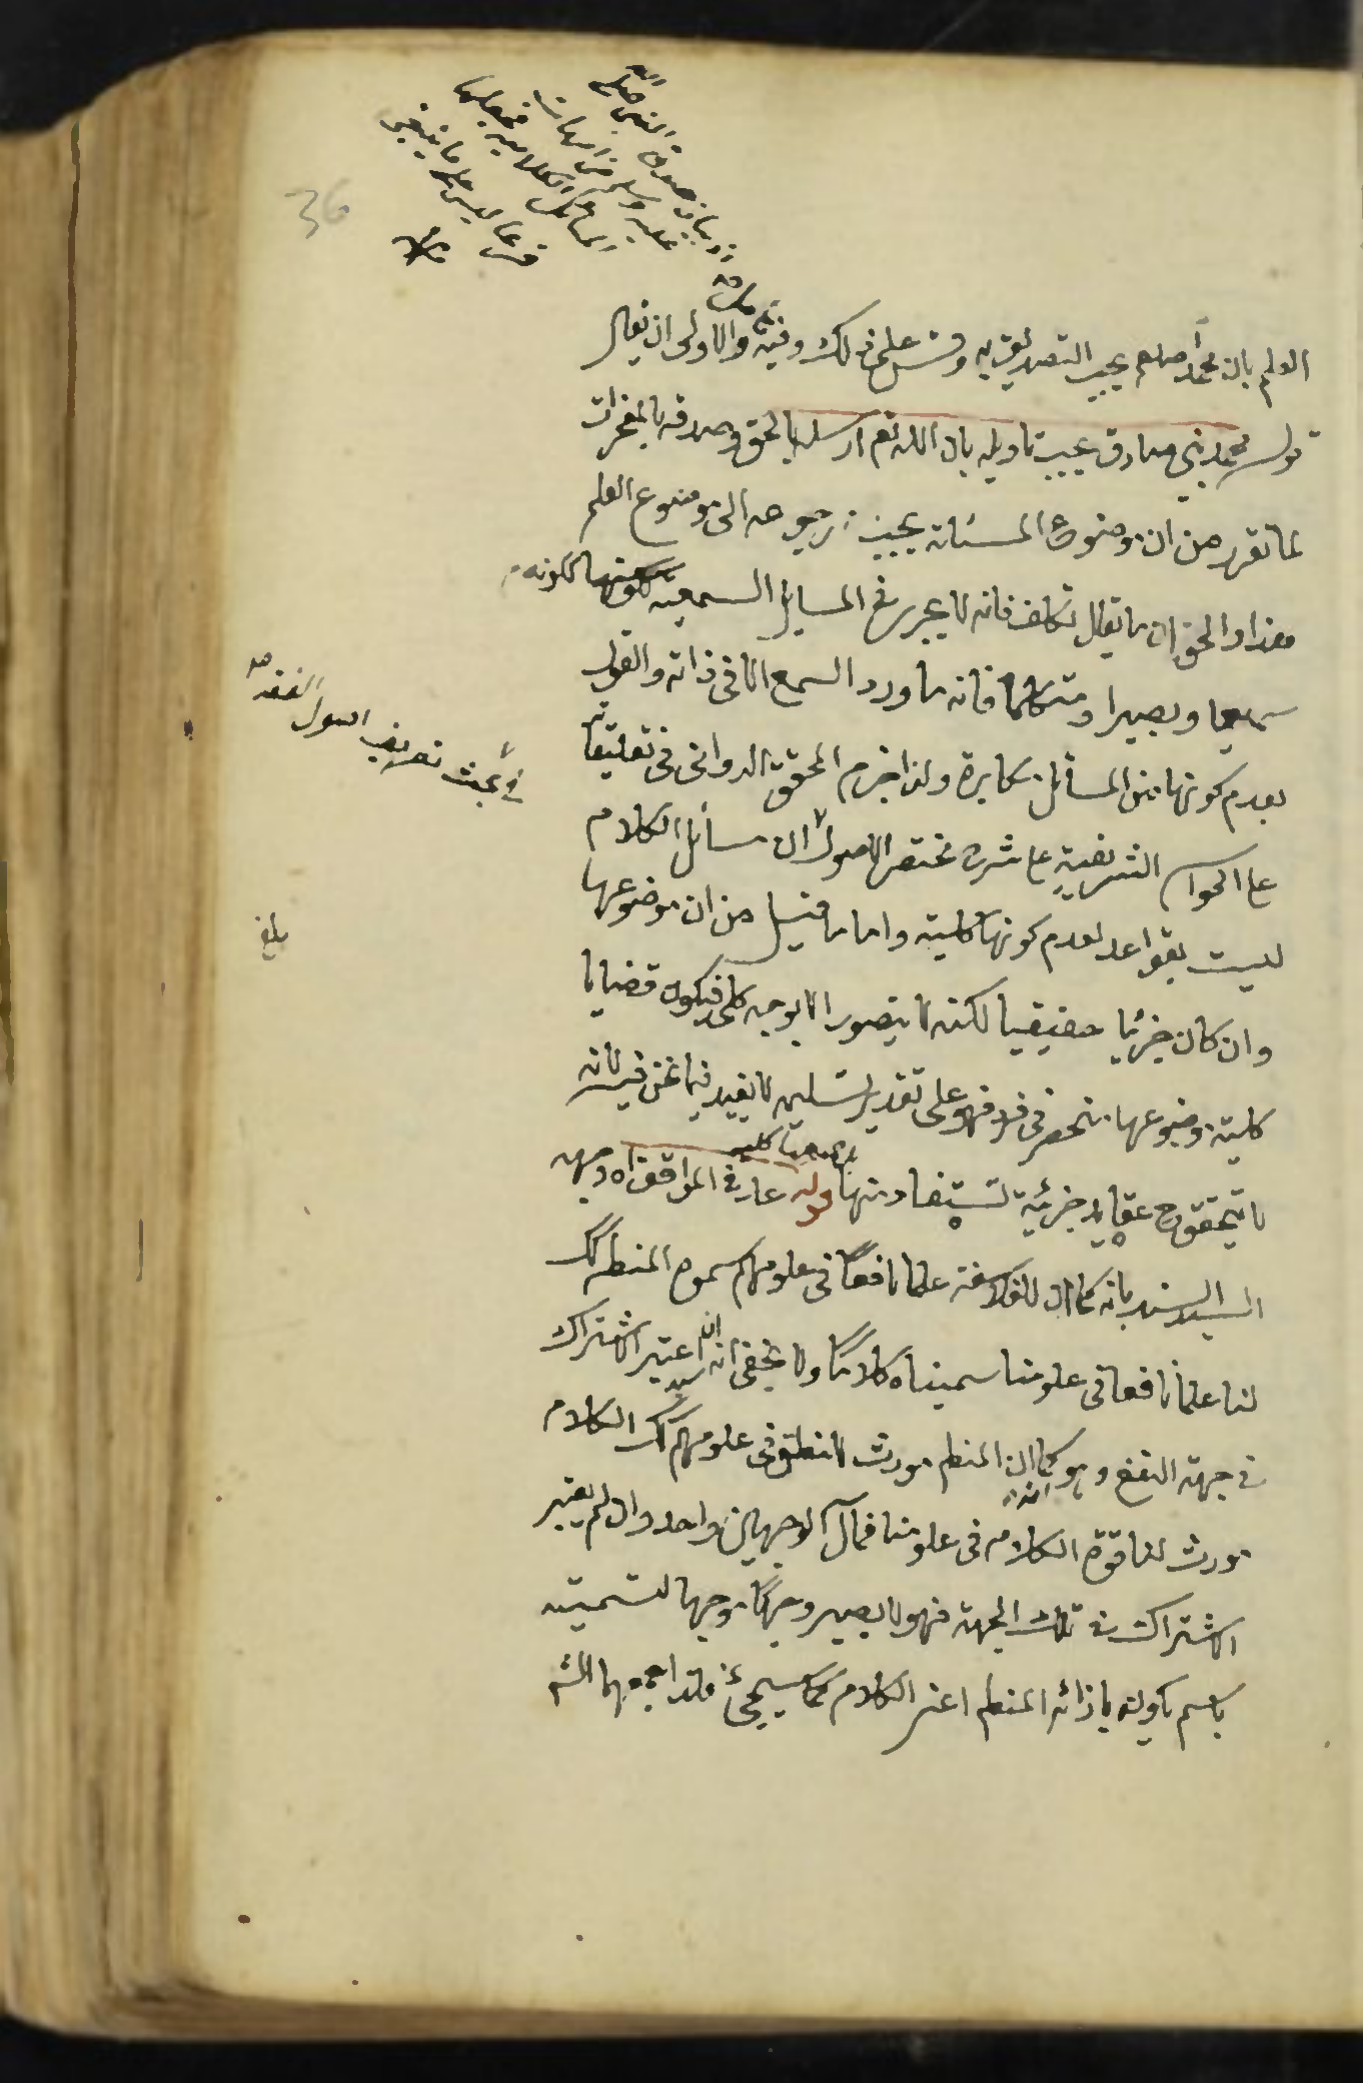 اذ بيان صدق النبي صلى الله
عليه وسلم من امهات
المسائل الكلامية فجعلها
فرعا ليس على ما ينبغي
منه
36
العلم بان محمدا صلعم يجب التصديق به وقس على ذلك وفيه والاولى ان يقال
قوله محمد نبي صادق يجب تاويله بان الله تعم ارسله بالحق وصدقه بالمعجزات
لما تقرر من ان موضوع المسئلة يجب رجوعه الى موضوع العلم
هذا والحق ان ما يقال تكلف فانه لا يجري في المسايل السمعية ككونه
سميعا وبصيرا ومتكلما فانه ما ورد السمع الا في ذاته والقول
بعدم كونها من المسائل مكابرة ولذا جزم المحقق الدواني في تعليقاته
على الحواشي الشريفية على شرح مختصر الاصول ان مسائل الكلام
في بحث تعريف اصول الفقه صح
ليست بقواعد لعدم كونها كلية واما ما قيل من ان موضوعها
بلغ
وان كان جزئيا حقيقيا لكنه لا يتصور الا بوجه كلي فيكون قضايا
كلية موضوعها منحصر في فرد فهو على تقدير تسليمه لا يفيد فيما نحن فيه لانه
لا يتحقق ح عقايد جزئية تستفاد منها قوله عد في المواقف اه وجهه
السيد السند بانه كما ان للفلاسفة علما نافعا في علومهم سموه المنطق كك
لنا علما نافعا في علومنا سميناه كلاما ولا يخفى انه ان اعتبر الاشتراك
في جهة النفع وهو كما ان المنطق مورث للنطق في علومهم كك الكلام
مورث لنا قوة الكلام في علومنا فمآل الوجهين واحد وان لم يعتبر
الاشتراك في تلك الجهة فهو لا يصير وجها موجها لتسميته
باسم كونه بازاء المنطق اعني الكلام كما سيجيء فلذا جمعهما الش